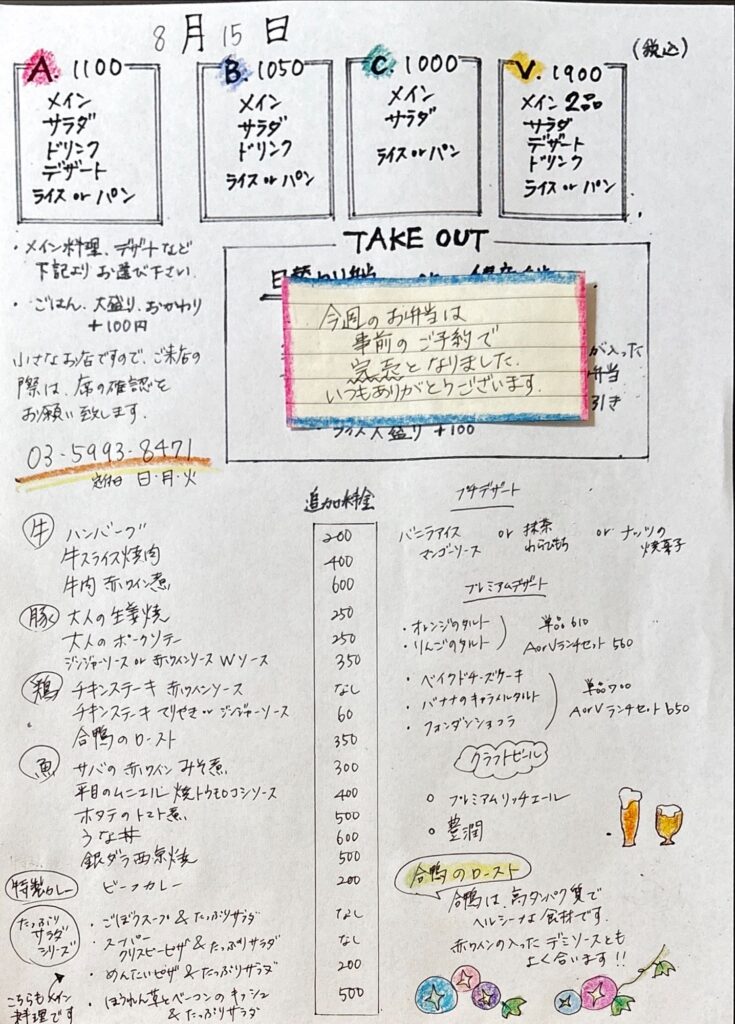 8月15日
(税込)
A. 1100
メイン
サラダ
ドリンク
デザート
ライス or パン
B. 1050
メイン
サラダ
ドリンク
ライス or パン
C. 1000
メイン
サラダ
ライス or パン
V. 1900
メイン 2品
サラダ
デザート
ドリンク
ライス or パン
・メイン料理、デザートなど
下記よりお選び下さい
・ごはん、大盛り、おかわり
+100円
小さなお店ですので、ご来店の
際は、席の確認を
お願い致します.
03-5993-8471
定休日 日・月・火
TAKE OUT
今週のお弁当は
事前のご予約で
完売となりました.
いつもありがとうございます.
が入った
弁当
引き
ライス大盛り +100
追加料金
牛
ハンバーグ 200
牛スライス焼肉 400
牛肉 赤ワイン煮 600
豚
大人の生姜焼 250
大人のポークソテー 250
ジンジャーソース or 赤ワインソース Wソース 350
鶏
チキンステーキ 赤ワインソース なし
チキンステーキ てりやき or ジンジャーソース 60
合鴨のロースト 350
魚
サバの赤ワインみそ煮 300
平目のムニエル 焼トウモロコシソース 400
ホタテのトマト煮 500
うな丼 600
銀ダラ西京焼 500
特製カレー
ビーフカレー 200
たっぷり
サラダ
シリーズ
・ごぼうスープ & たっぷりサラダ なし
・スーパー
クリスピーピザ & たっぷりサラダ なし
・めんたいピザ & たっぷりサラダ 200
・ほうれん草とベーコンのキッシュ
& たっぷりサラダ 500
こちらもメイン
料理です
プチデザート
バニラアイス
マンゴーソース
or 抹茶
わらびもち
or ナッツの
焼菓子
プレミアムデザート
・オレンジのタルト
・りんごのタルト
単品 610
AorVランチセット 560
・ベイクドチーズケーキ
・バナナのキャラメルタルト
・フォンダンショコラ
単品 700
AorVランチセット 650
クラフトビール
○ プレミアムリッチエール
○ 豊潤
合鴨のロースト
合鴨は、高タンパク質で
ヘルシーな食材です.
赤ワインの入ったデミソースとも
よく合います!!